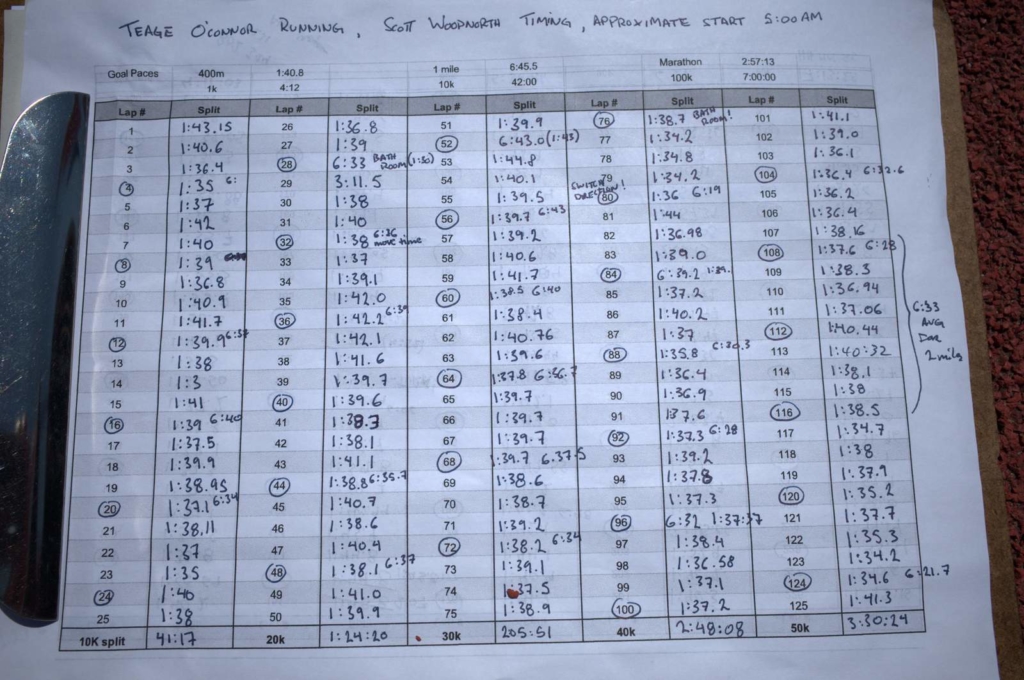 TEAGE O'CONNOR RUNNING, SCOTT WOODNORTH TIMING, APPROXIMATE START 5:00AM
Goal Paces 400m 1:40.8 1 mile 6:45.5 Marathon 2:57:13
1k 4:12 10k 42:00 100k 7:00:00
Lap # Split Lap # Split Lap # Split Lap # Split Lap # Split
1 1:43.15 26 1:36.8 51 1:39.9 76 1:38.7 BATH ROOM! 101 1:41.1
2 1:40.6 27 1:39 52 6:43.0 (1:43) 77 1:34.2 102 1:39.0
3 1:36.4 28 6:33 BATH ROOM (1:30) 53 1:44.8 78 1:34.8 103 1:36.1
4 1:35 6: 29 3:11.5 54 1:40.1 79 1:34.2 104 1:36.4 6:32.6
5 1:37 30 1:38 55 1:39.5 SWITCH DIRECTION! 80 1:36 6:19 105 1:36.2
6 1:42 31 1:40 56 1:39.7 6:43 81 1:44 106 1:36.4
7 1:40 32 1:38 6:36 move time 57 1:39.2 82 1:36.98 107 1:38.16
8 1:39 33 1:37 58 1:40.6 83 1:39.0 108 1:37.6 6:28
9 1:36.8 34 1:39.1 59 1:41.7 84 6:39.2 1:39. 109 1:38.3
10 1:40.9 35 1:42.0 60 1:38.5 6:40 85 1:37.2 110 1:36.94
11 1:41.7 36 1:42.2 6:39 61 1:38.4 86 1:40.2 111 1:37.06
12 1:39.9 6:37 37 1:42.1 62 1:40.76 87 1:37 112 1:40.44
13 1:38 38 1:41.6 63 1:39.6 88 1:35.8 6:30.3 113 1:40:32
14 1:3 39 1:39.7 64 1:37.8 6:36.7 89 1:36.4 114 1:38.1
15 1:41 40 1:39.6 65 1:39.7 90 1:36.9 115 1:38
16 1:39 6:40 41 1:38.7 66 1:39.7 91 1:37.6 116 1:38.5
17 1:37.5 42 1:38.1 67 1:39.7 92 1:37.3 6:28 117 1:34.7
18 1:39.9 43 1:41.1 68 1:39.7 6.37.5 93 1:39.2 118 1:38
19 1:38.95 44 1:38.8 6:35.7 69 1:38.6 94 1:37.8 119 1:37.9
20 1:37.1 6:34 45 1:40.7 70 1:38.7 95 1:37.3 120 1:35.2
21 1:38.11 46 1:38.6 71 1:39.2 96 6:32 1:37:37 121 1:37.7
22 1:37 47 1:40.4 72 1:38.2 6:34 97 1:38.4 122 1:35.3
23 1:35 48 1:38.1 6:37 73 1:39.1 98 1:36.58 123 1:34.2
24 1:40 49 1:41.0 74 1:37.5 99 1:37.1 124 1:34.6 6:21.7
25 1:38 50 1:39.9 75 1:38.9 100 1:37.2 125 1:41.3
10K split 41:17 20k 1:24:20 30k 2:05:51 40k 2:48:08 50k 3:30:24
6:33
AVG
2 miles